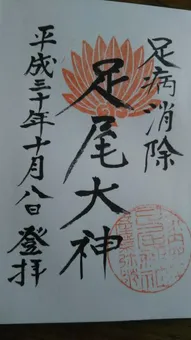 足病消除
足尾大神
平成三十年十月八日 登拜